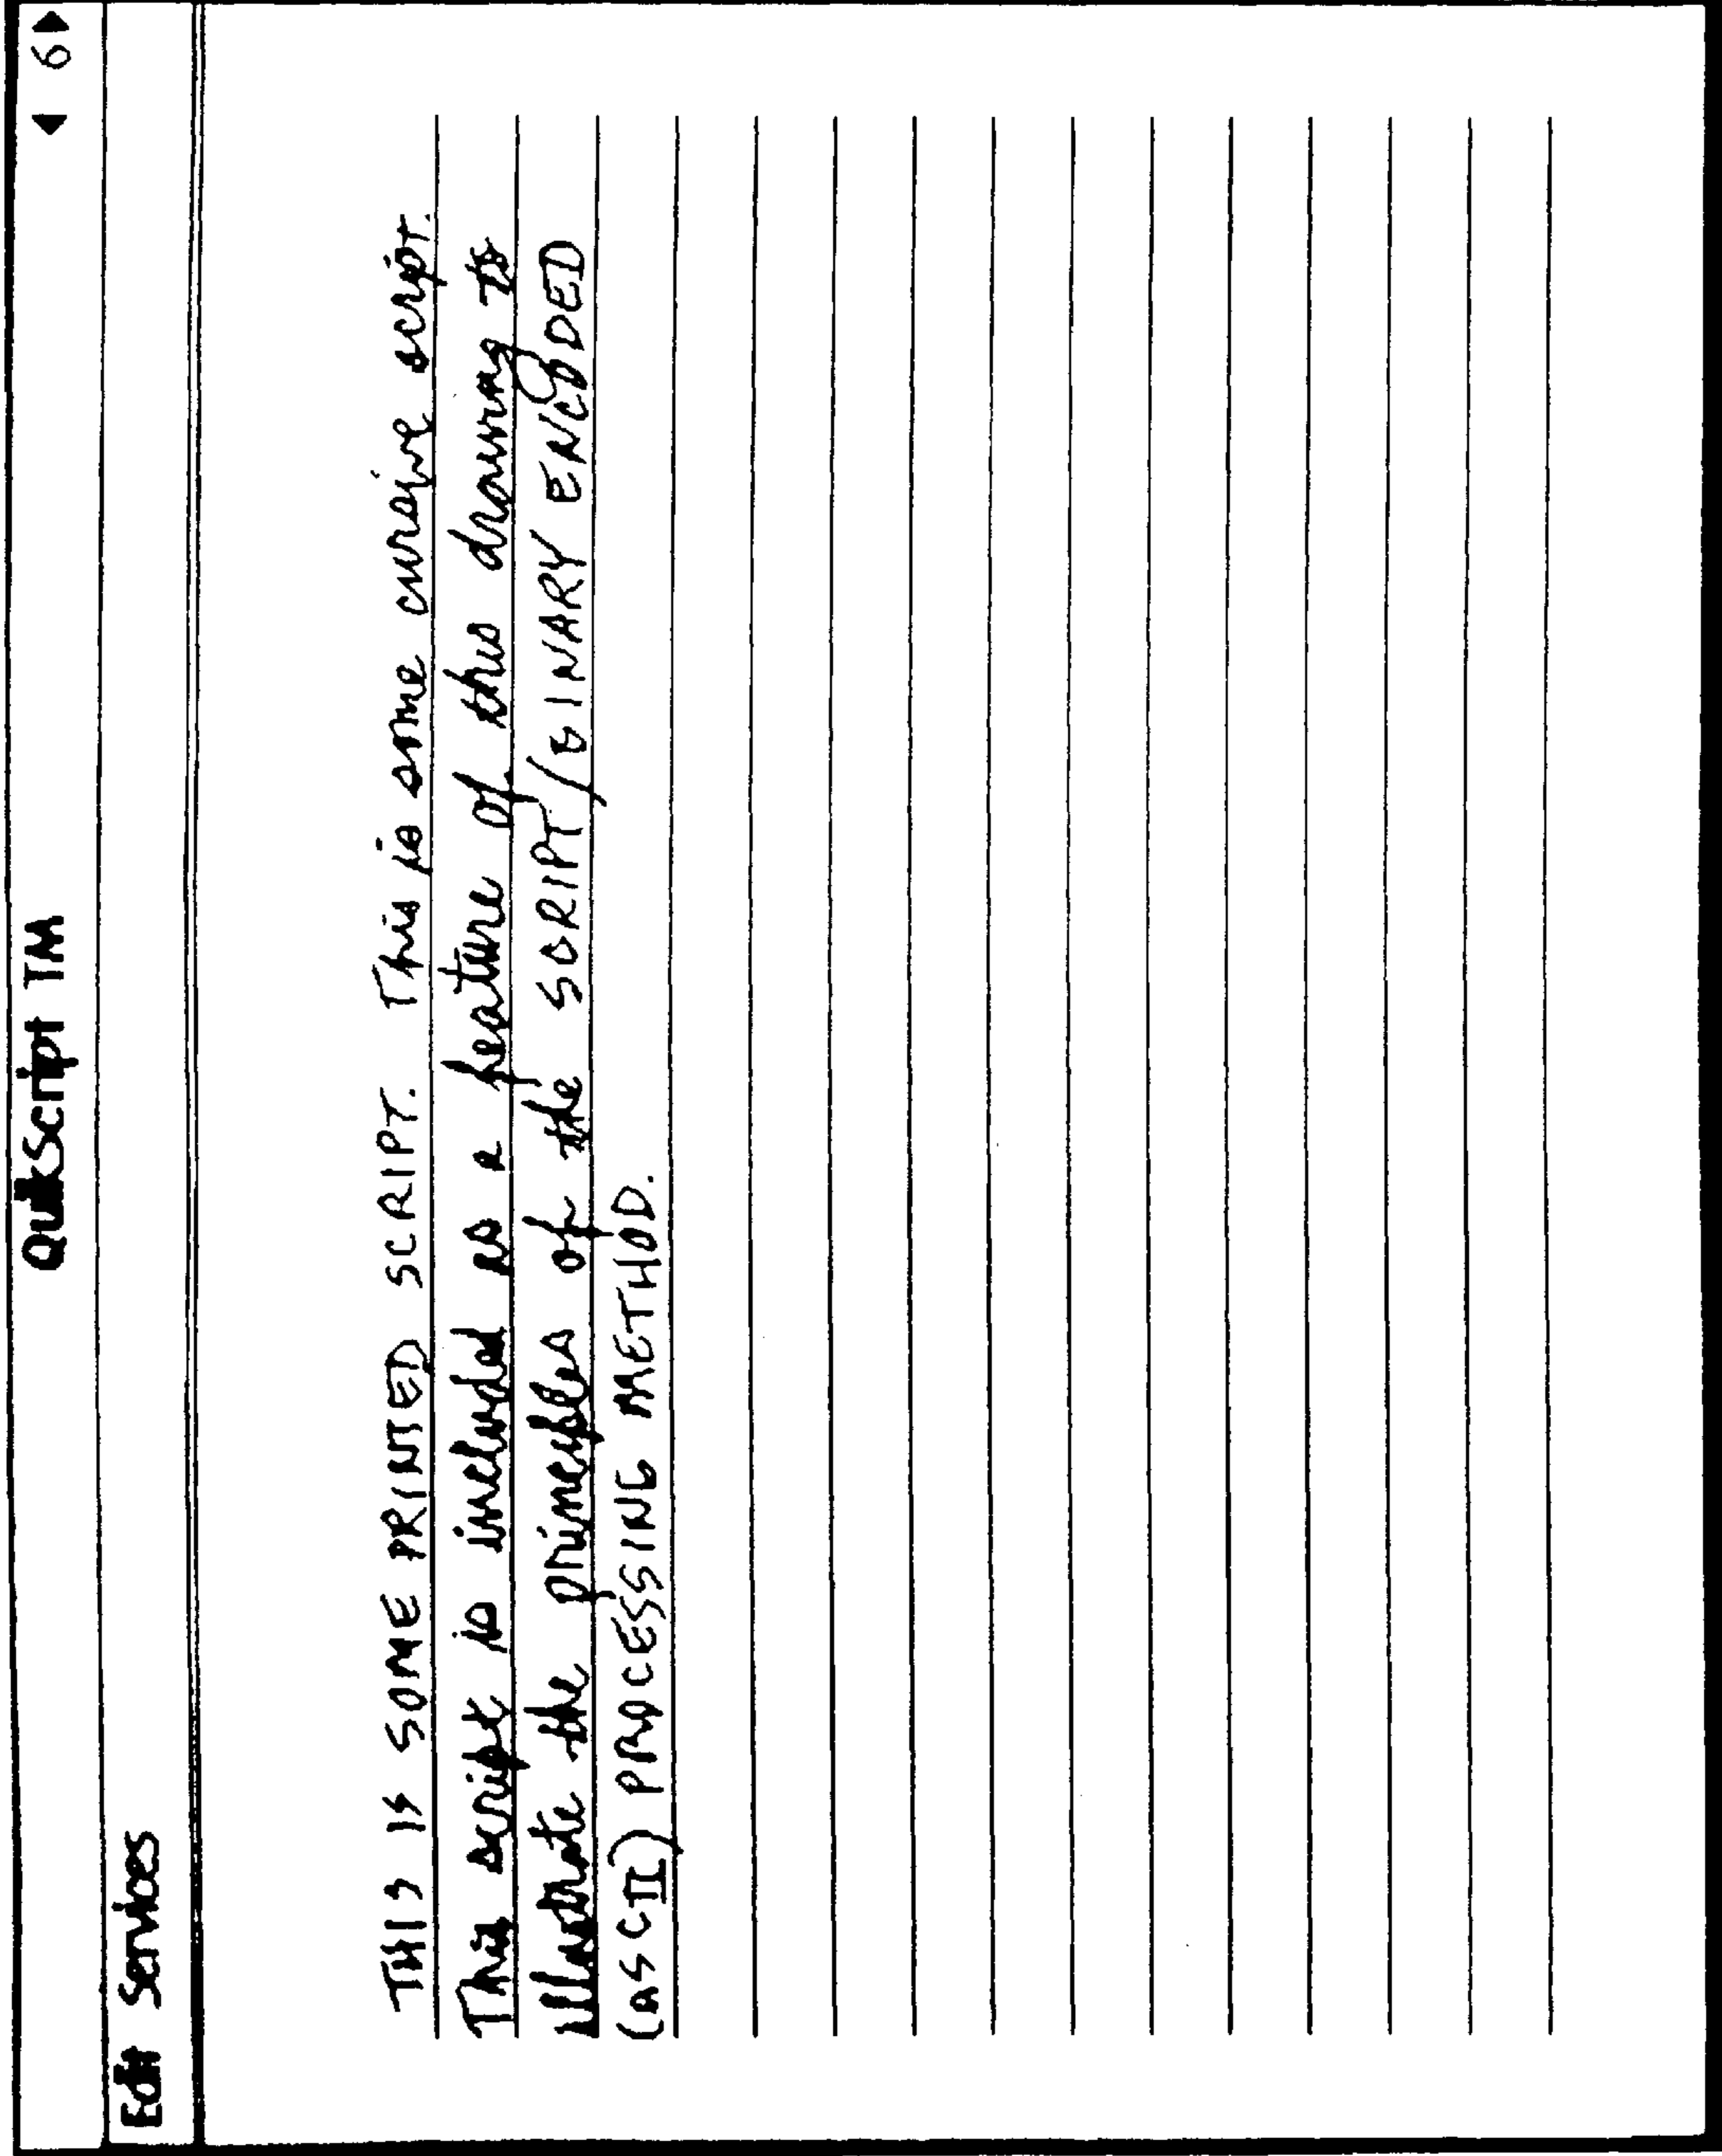 QuikScript TM
◀ 6 ▶
Edit Services
THIS IS SOME PRINTED SCRIPT. This is some cursive script.
This script is included as a feature of this drawing to
illustrate the principles of the SCRIPT/BINARY ENCODED
(ASCII) PROCESSING METHOD.